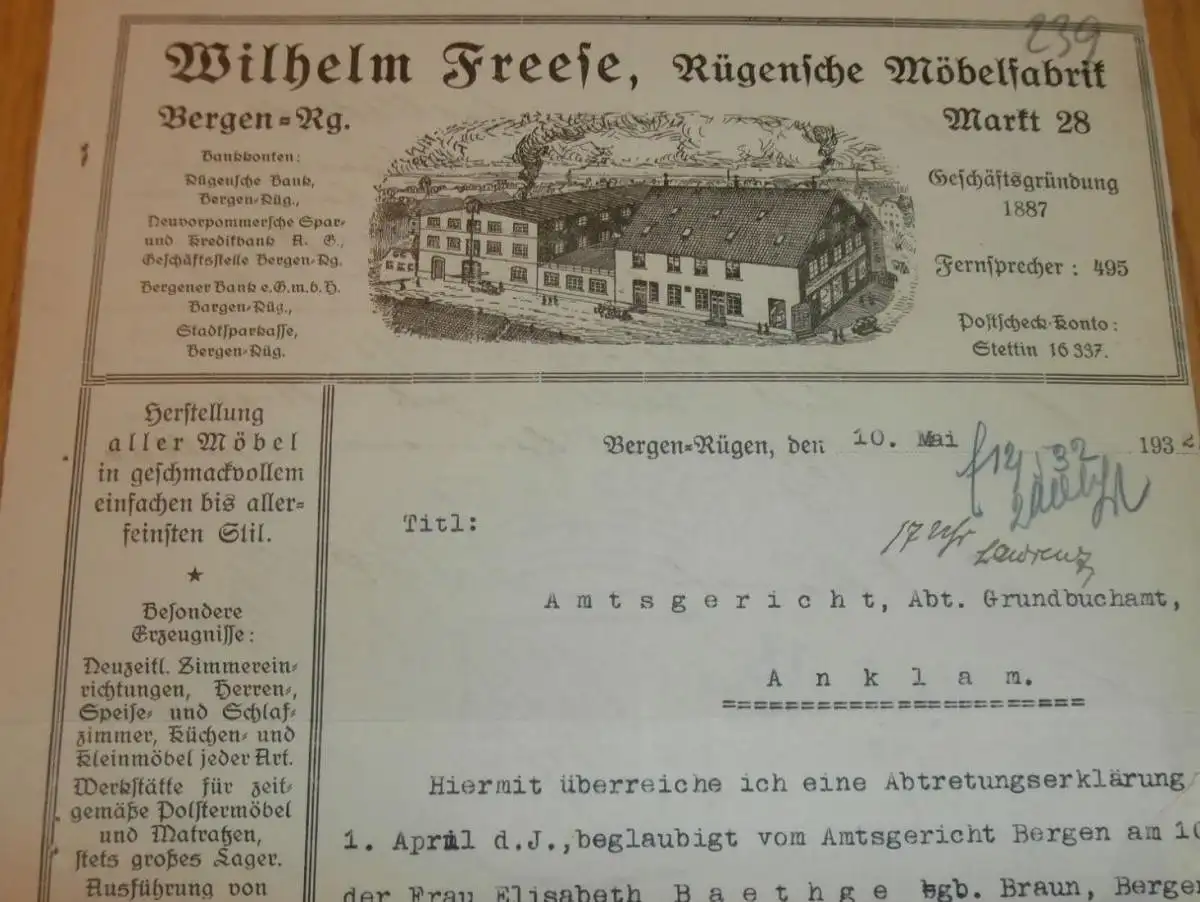 239
Wilhelm Freese, Rügensche Möbelfabrik
Bergen=Rg.
Markt 28
Bankkonten:
Rügensche Bank,
Bergen=Rüg.,
Neuvorpommersche Spar=
und Kreditbank A. G.,
Geschäftsstelle Bergen=Rg.
Bergener Bank e.G.m.b.H.
Bargen=Rüg.,
Stadtsparkasse,
Bergen=Rüg.
Geschäftsgründung
1887
Fernsprecher: 495
Postscheck=Konto:
Stettin 16 337.
Herstellung
aller Möbel
in geschmackvollem
einfachen bis aller=
feinsten Stil.
Besondere
Erzeugnisse:
Neuzeitl. Zimmerein=
richtungen, Herren=,
Speise= und Schlaf=
zimmer, Küchen= und
Kleinmöbel jeder Art.
Werkstätte für zeit=
gemäße Polstermöbel
und Matratzen,
stets großes Lager.
Ausführung von
Bergen=Rügen, den 10. Mai 1932
17 Uhr
Lawrenz
Titl:
Amtsgericht, Abt. Grundbuchamt,
Anklam.
Hiermit überreiche ich eine Abtretungserklärung
1. April d.J., beglaubigt vom Amtsgericht Bergen am 10
der Frau Elisabeth Baethge gb. Braun, Bergen